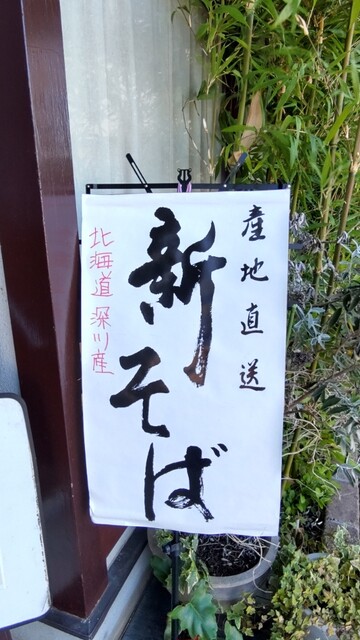 産地直送
新そば
北海道深川産